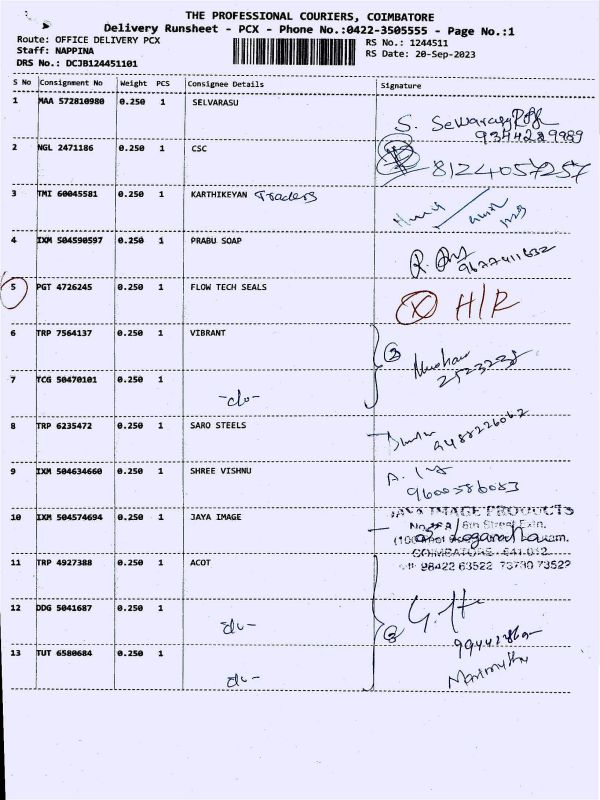 THE PROFESSIONAL COURIERS, COIMBATORE
Delivery Runsheet - PCX - Phone No.:0422-3505555 - Page No.:1
Route: OFFICE DELIVERY PCX
RS No.: 1244511
Staff: NAPPINA
RS Date: 20-Sep-2023
DRS No.: DCJB124451101
S No Consignment No Weight PCS Consignee Details Signature
1 MAA 572810980 0.250 1 SELVARASU
S. Selvarasu
9344289989
2 NGL 2471186 0.250 1 CSC
8124057257
3 TMI 60045581 0.250 1 KARTHIKEYAN Traders
4 IXM 504590597 0.250 1 PRABU SOAP
9677411632
5 PGT 4726245 0.250 1 FLOW TECH SEALS
X H/R
6 TRP 7564137 0.250 1 VIBRANT
2
2523238
7 TCG 50470101 0.250 1
-do-
8 TRP 6235472 0.250 1 SARO STEELS
9488226062
9 IXM 504634660 0.250 1 SHREE VISHNU
9600586083
10 IXM 504574694 0.250 1 JAYA IMAGE
JAYA IMAGE PRODUCTS
8th Street Extn.
COIMBATORE - 641 012.
98422 63522 73730 73522
11 TRP 4927388 0.250 1 ACOT
12 DDG 5041687 0.250 1
-do-
3
13 TUT 6580684 0.250 1
-do-